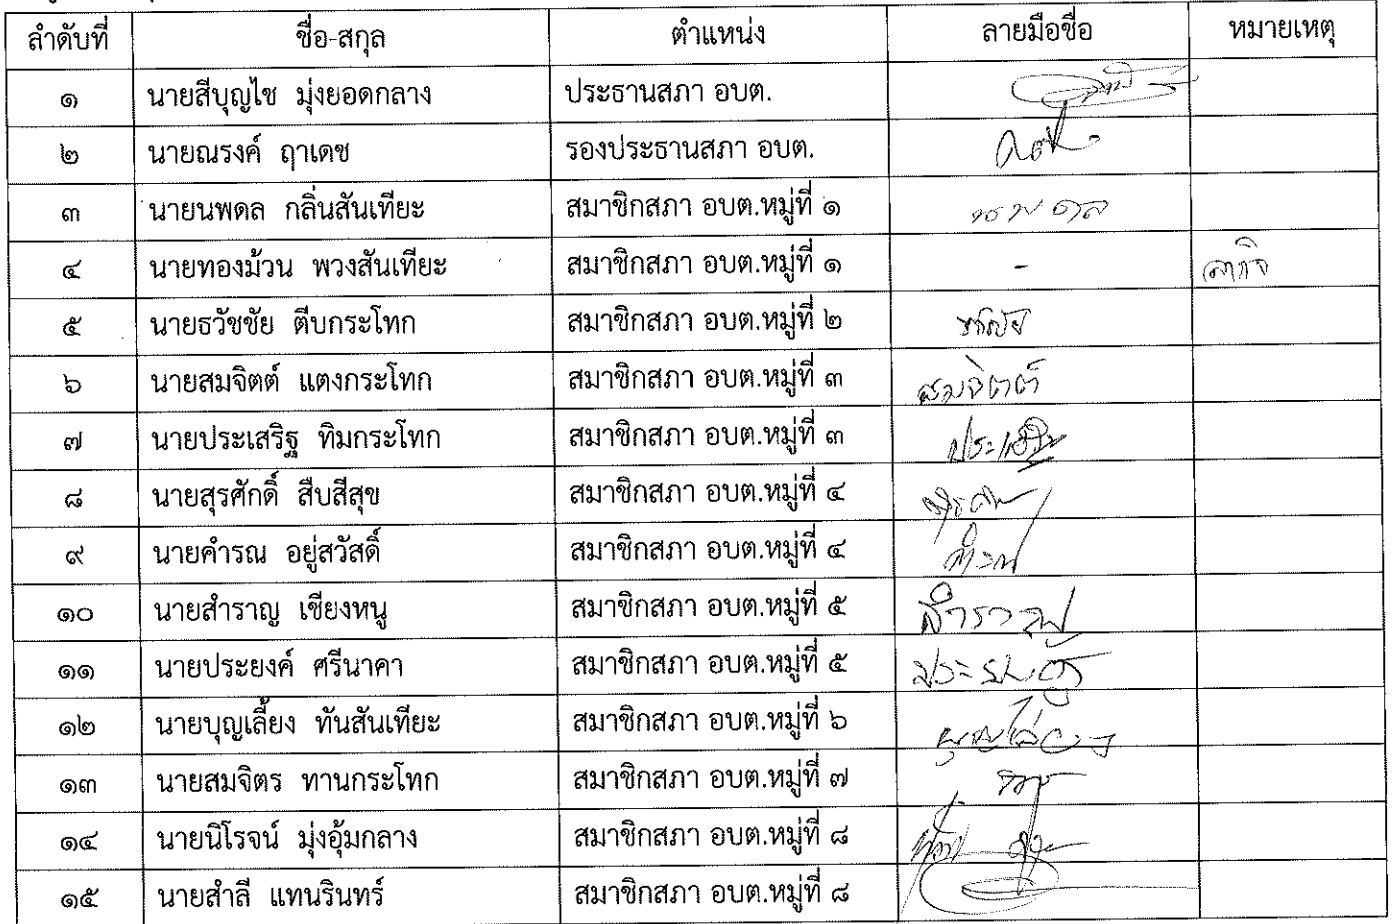 ลำดับที่ ชื่อ-สกุล ตำแหน่ง ลายมือชื่อ หมายเหตุ
๑ นายสีบุญไช มุ่งยอดกลาง ประธานสภา อบต.
๒ นายณรงค์ ฤาเดช รองประธานสภา อบต.
๓ นายนพดล กลิ่นสันเทียะ สมาชิกสภา อบต.หมู่ที่ ๑ นพดล
๔ นายทองม้วน พวงสันเทียะ สมาชิกสภา อบต.หมู่ที่ ๑ - ลากิจ
๕ นายธวัชชัย ตีบกระโทก สมาชิกสภา อบต.หมู่ที่ ๒
๖ นายสมจิตต์ แตงกระโทก สมาชิกสภา อบต.หมู่ที่ ๓ สมจิตต์
๗ นายประเสริฐ ทิมกระโทก สมาชิกสภา อบต.หมู่ที่ ๓ ประเสริฐ
๘ นายสุรศักดิ์ สืบสีสุข สมาชิกสภา อบต.หมู่ที่ ๔
๙ นายคำรณ อยู่สวัสดิ์ สมาชิกสภา อบต.หมู่ที่ ๔ คำรณ
๑๐ นายสำราญ เชียงหนู สมาชิกสภา อบต.หมู่ที่ ๕ สำราญ
๑๑ นายประยงค์ ศรีนาคา สมาชิกสภา อบต.หมู่ที่ ๕ ประยงค์
๑๒ นายบุญเลี้ยง ทันสันเทียะ สมาชิกสภา อบต.หมู่ที่ ๖ บุญเลี้ยง
๑๓ นายสมจิตร ทานกระโทก สมาชิกสภา อบต.หมู่ที่ ๗
๑๔ นายนิโรจน์ มุ่งอุ้มกลาง สมาชิกสภา อบต.หมู่ที่ ๘
๑๕ นายสำลี แทนรินทร์ สมาชิกสภา อบต.หมู่ที่ ๘